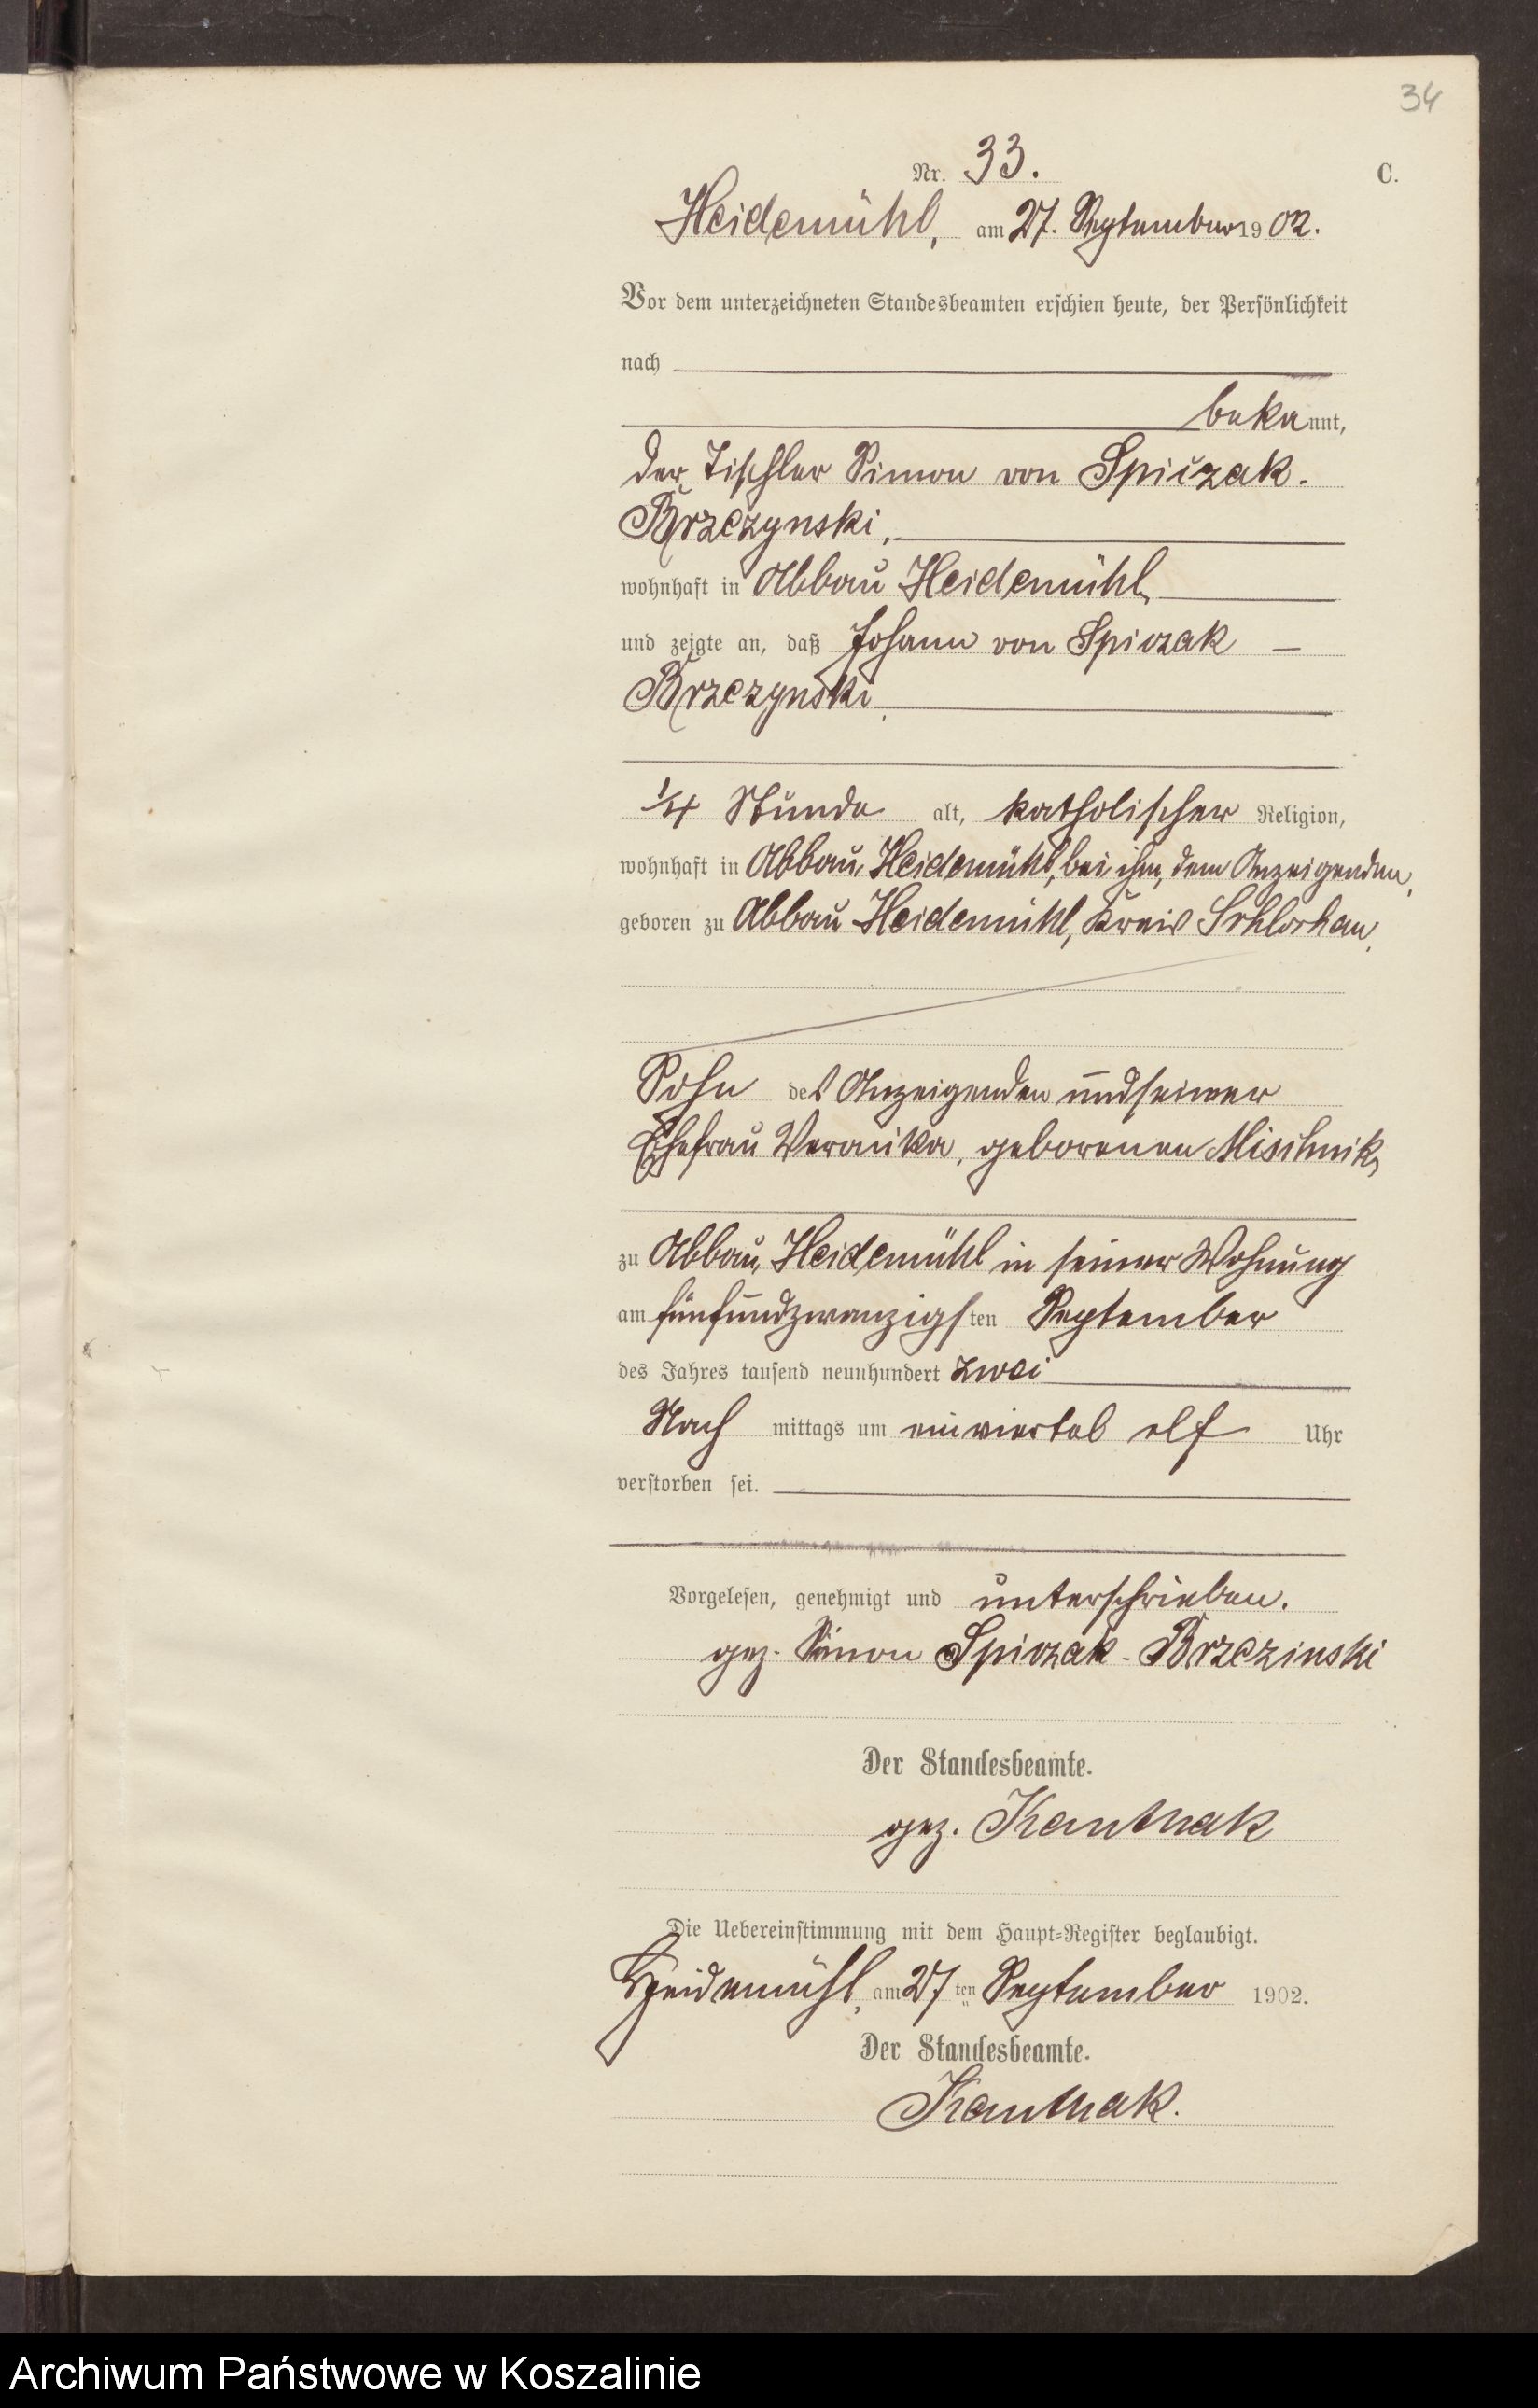 34
Nr. 33.
C.
Heidemühl, am 27. September 1902.
Vor dem unterzeichneten Standesbeamten erschien heute, der Persönlichkeit
nach
bekannt,
der Tischler Simon von Spiczak-
Brzezynski,
wohnhaft in Abbau Heidemühl,
und zeigte an, daß Johann von Spiczak —
Brzezynski,
1/4 Stunde alt, katholischer Religion,
wohnhaft in Abbau Heidemühl, bei ihm, dem Anzeigenden,
geboren zu Abbau Heidemühl, Kreis Schlochau,
Sohn des Anzeigenden und seiner
Ehefrau Veronika, geborenen Mischnik,
zu Abbau Heidemühl in seiner Wohnung
am fünfundzwanzigsten September
des Jahres tausend neunhundert zwei
Nach mittags um einviertel elf Uhr
verstorben sei.
Vorgelesen, genehmigt und unterschrieben.
gez. Simon Spiczak-Brzezinski
Der Standesbeamte.
gez.
Die Uebereinstimmung mit dem Haupt-Register beglaubigt.
Heidemühl, am 27ten September 1902.
Der Standesbeamte.
Archiwum Państwowe w Koszalinie